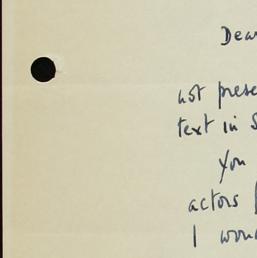 Dear
not prese
text in S
You
actors
I wou